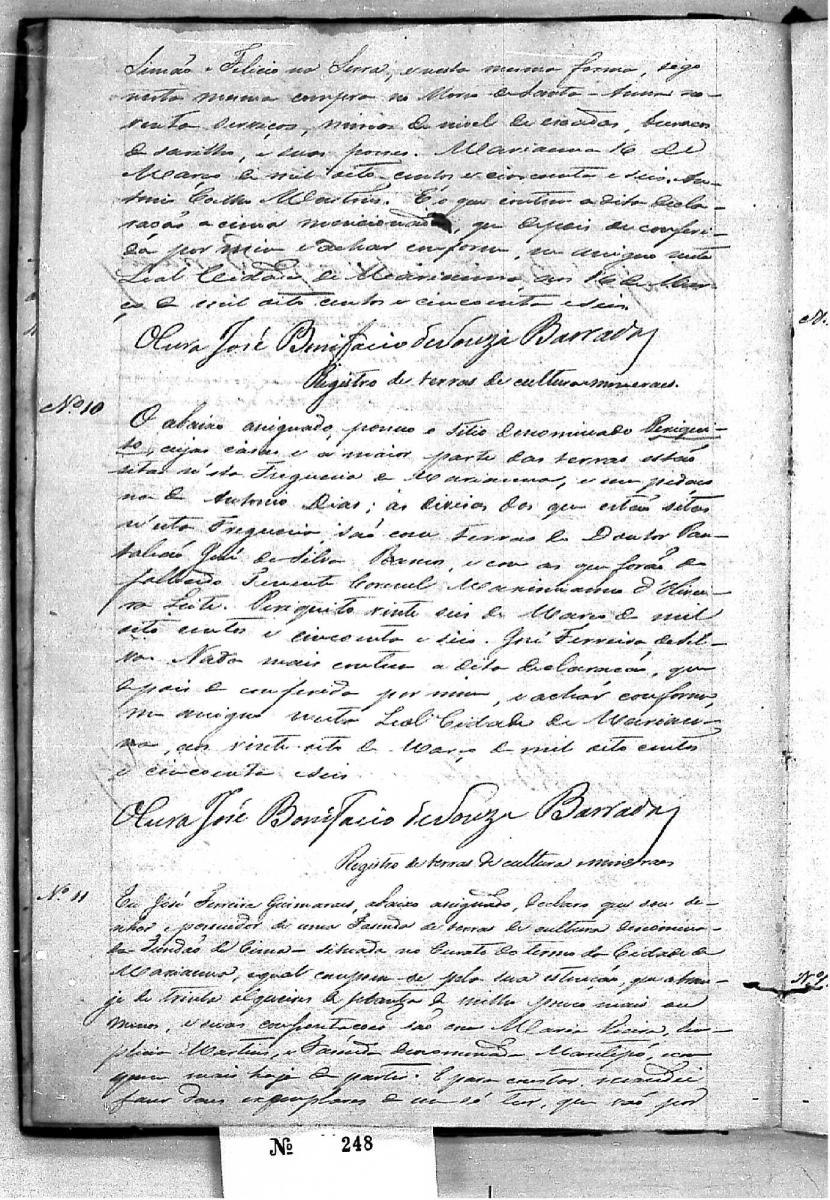 Simão e Felicio na Serra, e nesta mesma forma, sego
nesta mesma compra no Morro de Santa-Anna no-
venta serviços, minas de nivel de escadas, buracos
de sarilho, e suas posses. Marianna 16 de
Março de mil oito centos e cincoenta e seis. An-
tonio Coelho Martins. É o que contem a dita decla-
ração acima mencionada, que depois de conferi-
da por mim e achar conforme, me assigno nesta
Leal Cidade de Marianna, aos 16 de Mar-
ço de mil oito centos e cincoenta e seis
O Cura José Bonifacio de Souza Barradas
Registro de terras de cultura e mineraes.
Nº 10
O abaixo assignado, possue o sitio denominado Periqui-
to, cujas casas e a maior parte das terras estão
sitas n'esta Freguesia de Marianna, e um pedaço
na de Antonio Dias; as divisas dos que estão sitas
n'esta Freguesia, são com terras do Doutor Pan-
talião José da Silva Ramos, e com as que forão do
falecido Tenente Coronel Maximianno d'Olivei-
ra Leite. Periquito vinte seis de Março de mil
oito centos e cincoenta e seis. José Ferreira da Sil-
va. Nada mais contem a dita declaração, que
depois de conferida por mim, e achar conforme,
me assigno nesta Leal Cidade de Marian-
na, aos vinte oito de Março de mil oito centos
e cincoenta e seis
O Cura José Bonifacio de Souza Barradas
Registro de terras de cultura e mineraes
Nº 11
Eu José Ferreira Guimaraes, abaixo assignado, declaro que sou se-
nhor e possuidor de uma Fasenda de terras de cultura denomina-
da Fundão de Cima situada no Curato do termo da Cidade de
Marianna, a qual compoem-se pela sua extenção, que abran-
je de trinta alqueires de planta de milho pouco mais ou
menos, e suas confrontacoes são com Maria Vieira, Sim-
plicio Martins, e Fasenda denominada, e com
quem mais haja de partir. E para constar, mandei
faser dous exemplares de um só teor, que vaõ por
Nº 248